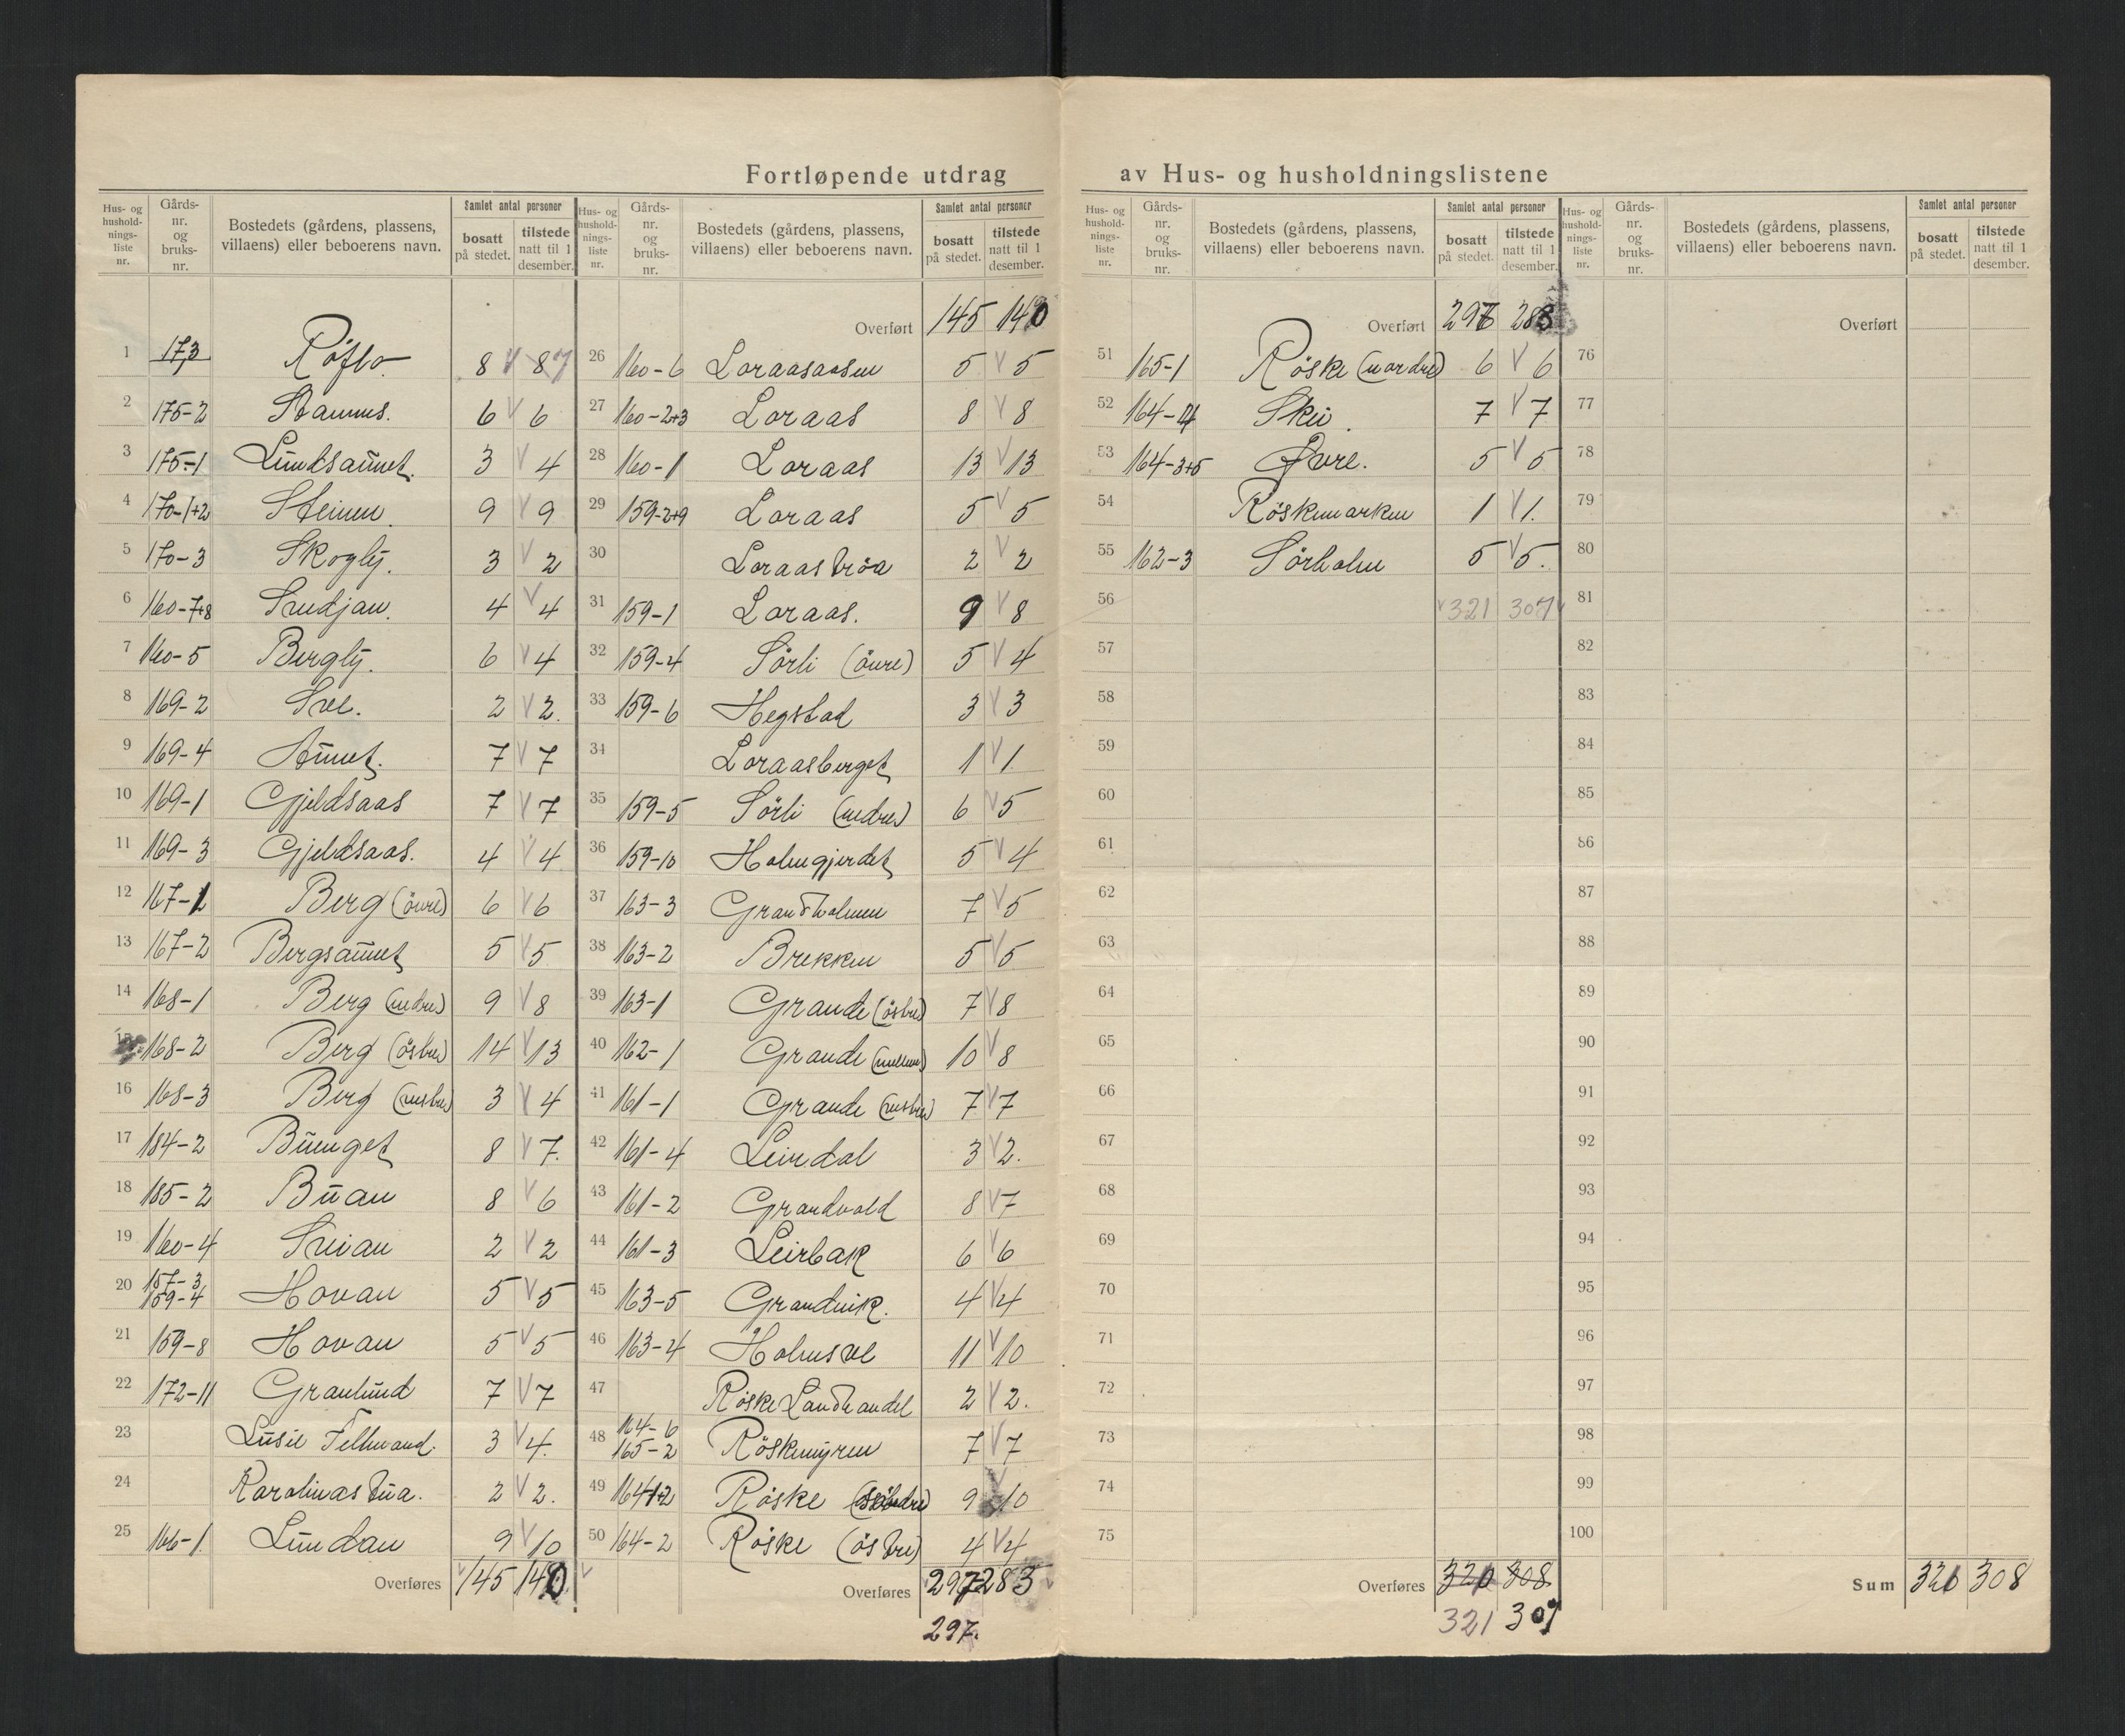 Fortløpende utdrag av Hus- og husholdningslistene
Hus- og hushold- nings- liste nr. Gårds- nr. og bruks- nr. Bostedets (gårdens, plassens, villaens) eller beboerens navn. Samlet antal personer bosatt på stedet. tilstede natt til 1 desember.
1 173 Röflo 8 v 8 7
2 175-2 Aunns. 6 v 6
3 175-1 Lundsaunet. 3 v 4
4 170-1+2 Steinen. 9 v 9
5 170-3 Skogly. 3 v 2
6 160-7+8 Svedjan. 4 v 4
7 160-5 Bergly. 6 v 4
8 169-2 Sve. 2 v 2.
9 169-4 Aunet. 7 v 7
10 169-1 Gjeldsaas 7 v 7
11 169-3 Gjeldsaas. 4 v 4
12 167-1 Berg (övre) 6 v 6
13 167-2 Bergsaunet 5 v 5
14 168-1 Berg (nedre) 9 v 8
15 168-2 Berg (östre) 14 v 13
16 168-3 Berg (vestre) 3 v 4
17 184-2 Buenget 8 v 7.
18 185-2 Buan 8 v 6
19 160-4 Sveian 2 v 2
20 157-3 159-4 Hovan 5 v 5
21 159-8 Hovan 5 v 5
22 172-11 Granlund 7 v 7
23 Lusie Fellmand. 3 v 4.
24 Karolinastua. 2 v 2.
25 166-1 Lundan 9 v 10
Overføres 145 140
Hus- og hushold- nings- liste nr. Gårds- nr. og bruks- nr. Bostedets (gårdens, plassens, villaens) eller beboerens navn. Samlet antal personer bosatt på stedet. tilstede natt til 1 desember.
Overført 145 140
26 160-6 Loraasaasen 5 v 5
27 160-2+3 Loraas 8 v 8
28 160-1 Loraas 13 v 13
29 159-2+9 Loraas 5 v 5
30 Loraastrøa 2 v 2
31 159-1 Loraas. 9 v 8
32 159-4 Sörli (övre) 5 v 4
33 159-6 Hegstad 3 v 3
34 Loraasberget 1 v 1
35 159-5 Sörli (nedre) 6 v 5
36 159-10 Holmgjerdet 5 v 4
37 163-3 Grandholmen 7 v 5
38 163-2 Brekken 5 v 5
39 163-1 Grande (östre) 7 v 8
40 162-1 Grande (mellem) 10 v 8
41 161-1 Grande (vestre) 7 v 7
42 161-4 Leirdal 3 v 2.
43 161-2 Grandvold 8 v 7
44 161-3 Leirbak 6 v 6
45 163-5 Grandvik. 4 v 4
46 163-4 Holmsve 11 v 10
47 Röske Landhandel 2 v 2.
48 164-6 165-2 Röskemyren 7 v 7
49 164 1+2 Röske 9 10
50 164-2 Röske (östre) 4 v 4
Overføres 297 283
297.
Hus- og hushold- nings- liste nr. Gårds- nr. og bruks- nr. Bostedets (gårdens, plassens, villaens) eller beboerens navn. Samlet antal personer bosatt på stedet. tilstede natt til 1 desember.
Overført 297 283
51 165-1 Röske (nordre) 6 v 6
52 164-4 Skei. 7 v 7
53 164-3+5 Øvre. 5 v 5
54 Röskemarken 1 v 1.
55 162-3 Sörholm 5 v 5.
56 v 321 307 v
57
58
59
60
61
62
63
64
65
66
67
68
69
70
71
72
73
74
75
Overføres 320 308
321 307
Hus- og hushold- nings- liste nr. Gårds- nr. og bruks- nr. Bostedets (gårdens, plassens, villaens) eller beboerens navn. Samlet antal personer bosatt på stedet. tilstede natt til 1 desember.
Overført
76
77
78
79
80
81
82
83
84
85
86
87
88
89
90
91
92
93
94
95
96
97
98
99
100
Sum 320 308